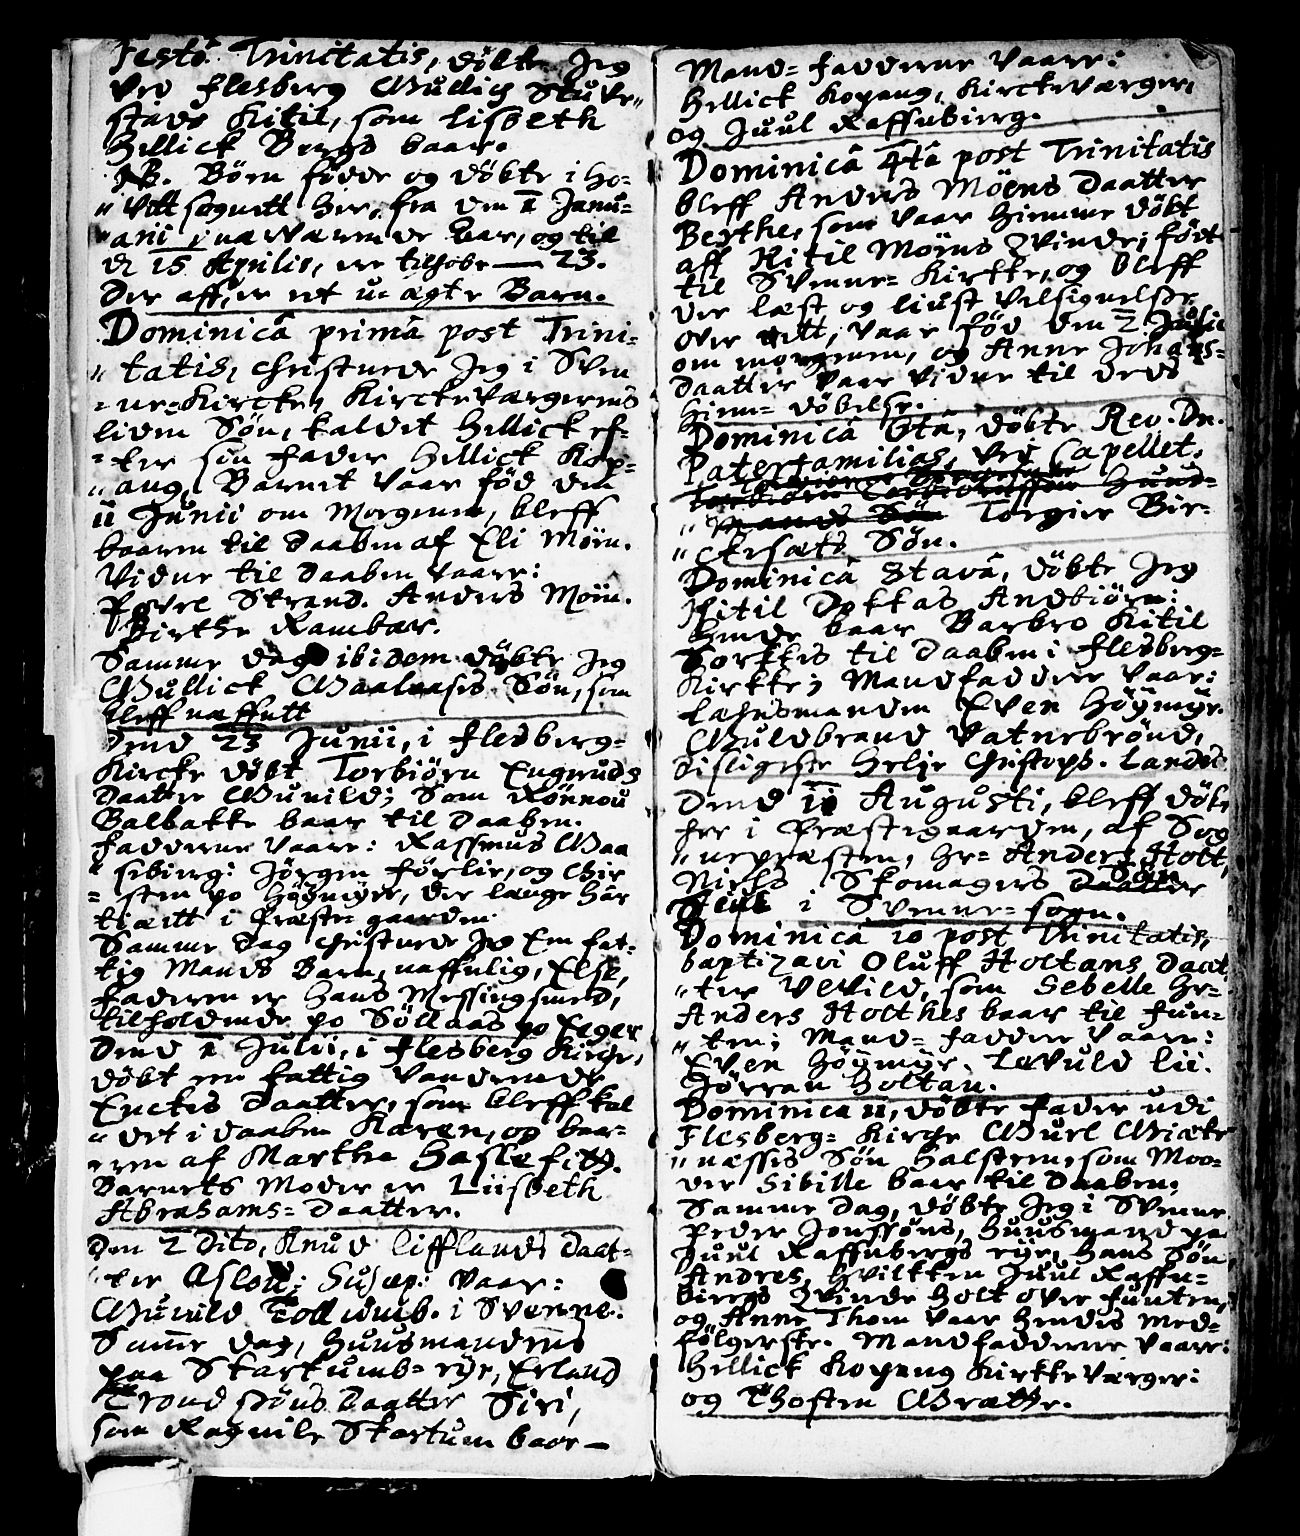 Festo Trinitatis, döbte Jeg
ved Flesberg Gullich Stuve„
stads Kitil, som Lisbeth
Hellick Bergs baar.
NB. Börn födde og döbte i ho-
„vett sognett her, fra den 1 Janu-
„arij, nærværende Aar, og til
d. 15 Aprilis, ere tilhobe — 23.
Der aff, er et u-ægte Barn.
Dominicâ primâ post Trini-
„tatis, christnede Jeg i Sven
„ne-Kircke, Kirckeværgerens
liden Sön, kaldet Hellick ef-
„ter sin fader Hellick Kop-
„ang, Barnet vaar föd den
11 Junii om Morgenen, bleff
baaren til Daaben af Eli Möen.
Vidne til Daaben vaare:
Povel Strand. Anders Möen.
Birthe Rambær.
Samme dag ibidem döbte Jeg
Gullick Gaalaasis Sön, som
bleff næffnett
Dend 23 Junii, i Flesberg-
Kircke döbt Torbiörn Engeruds
Daatter Gunild; Som Rönnou
Balbakke baar til Daaben.
Fadderne vaare: Rassmus Gaa
„sebierg: Jörgen Förlie, og Gier
„sten po Höymyr, der længe har
tient i Præste-gaarden.
Samme Dag christnede Jeg Een fat-
tig Mands Barn, naffnlig, Else,
Faderen er Hans Messingsmed,
tilholdende po Söllaas po Eger
Dend 1 Julii, i Flesberg Kirche,
döbt een fattig vandrende
Enckes Daatter, som bleff kal
„det i daaben Karen, og baar-
„ren af Marthe Haslefitt.
Barnets Moder er Liisbeth
Abrahams-Daatter.
Den 2 Dito, Knud Lifflands Daat-
„ter Aslou; Susep: vaar:
Gunild Tollumb. i Svenne.
Samme dag, Huusmandens
paa Skartumb-eye, Erland
Trondsöns Daatter Siri,
som Ragnile Skartum baar —
Mand-fadderne vaare:
Hellick Kopang, Kirckeværger,
og Juul Raffnebierg.
Dominicâ 4tâ post Trinitatis
bleff Anders Möens Daatter
Berthe, som vaar hiemme döbt
aff Kitil Möens Qvinde; födt
til Svenne-Kirkke, og bleff
der læst og liust velsignelse
over dett, vaar föd den 2 Julii
om morgenen, og Anne Johans-
Daatter vaar vidne til deds
hiem-döbelse.
Dominicâ 6tâ, döbte Rev. Dn.
Paterfamilias, ved Capellet,
Huus-
„mands Sön Torgier Bir-
„ckesæts Sön.
Dominicâ 8tavâ, döbte Jeg
Kitil Dokkas Andbiörn:
Hende baar Barbro Kitil
Torkkes til Daaben i Flesberg-
Kirkke; Mandfaddere vaar:
Lænsmanden Even Höymÿr.
Guldbrand Vatnebrönd,
disligeste Helje Christoph. Landes
Dend 11 Augusti, bleff döbt
her i Præstegaarden, af Sog
„nepræsten, Hr- Anders Holt,
Niels Skomagers Daatter Sön
i Svenne-sogn.
Dominica 10 post Trinitatis,
baptizavi Oluff Holtans Daat
„ter Wevild, som Sebelle Hr-
Anders Holthes baar til Fun-
„ten; Mand-faddere vaare:
Even Höymÿr. Levuld Lii.
Jörran Holtan.
Dominica 11, döbte Fader udi
Flesberg-Kirche Gurl Giæte
„næsses Sön Halsteen, som Moo-
der Sibille baar til Daaben.
Samme Dag, döbte Jeg i Svenne
Peder Jonssöns, Huusmand pa
Juul Raffnebergs eye, Hans Sön
Andres, hvilkken Juul Raffne-
biergs Qvinde holt over Funten,
og Anne Thom vaar hendes med-
fölgerske. Mandfadderne vaare:
Hellick Kopang Kirkkeværger:
og Thosten Grætte.